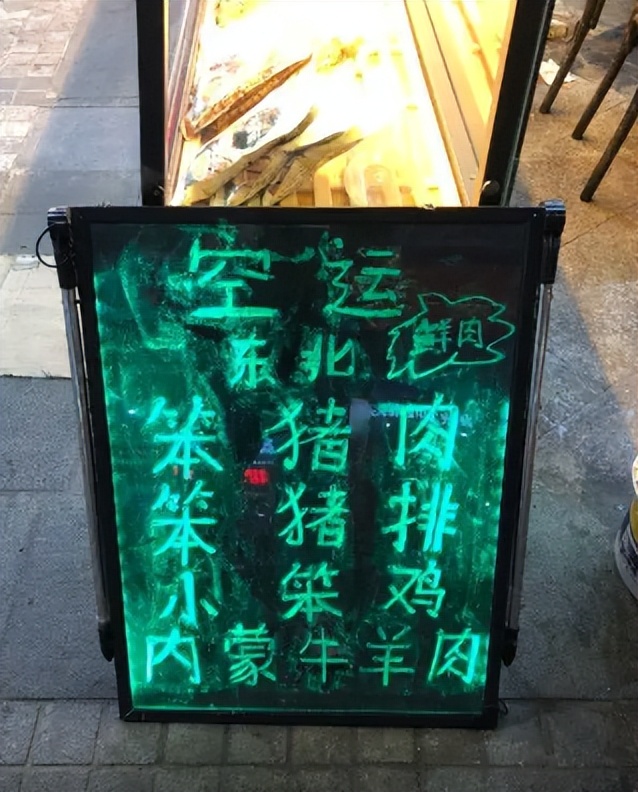 空运
东北
鲜肉
笨猪肉
笨猪排
小笨鸡
内蒙牛羊肉